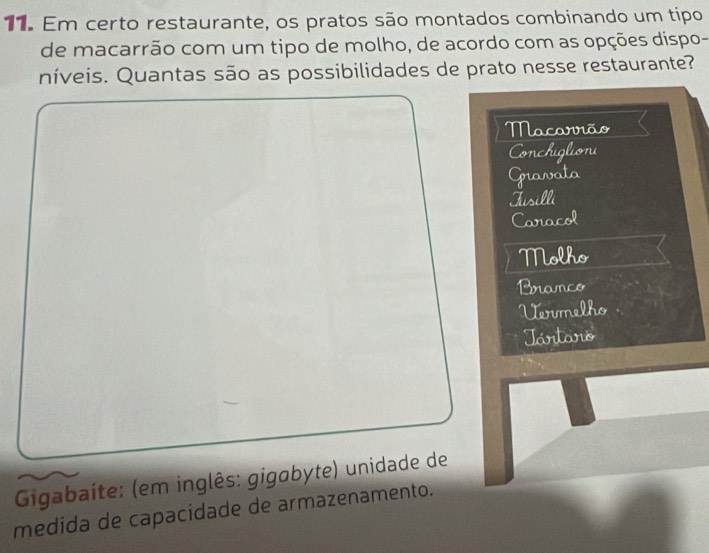 11. Em certo restaurante, os pratos são montados combinando um tipo
de macarrão com um tipo de molho, de acordo com as opções dispo-
níveis. Quantas são as possibilidades de prato nesse restaurante?
Macarrão
Conchiglioni
Gravata
Fusilli
Caracol
Molho
Branco
Vermelho
Tártaro
Gigabaite: (em inglês: gigabyte) unidade de
medida de capacidade de armazenamento.